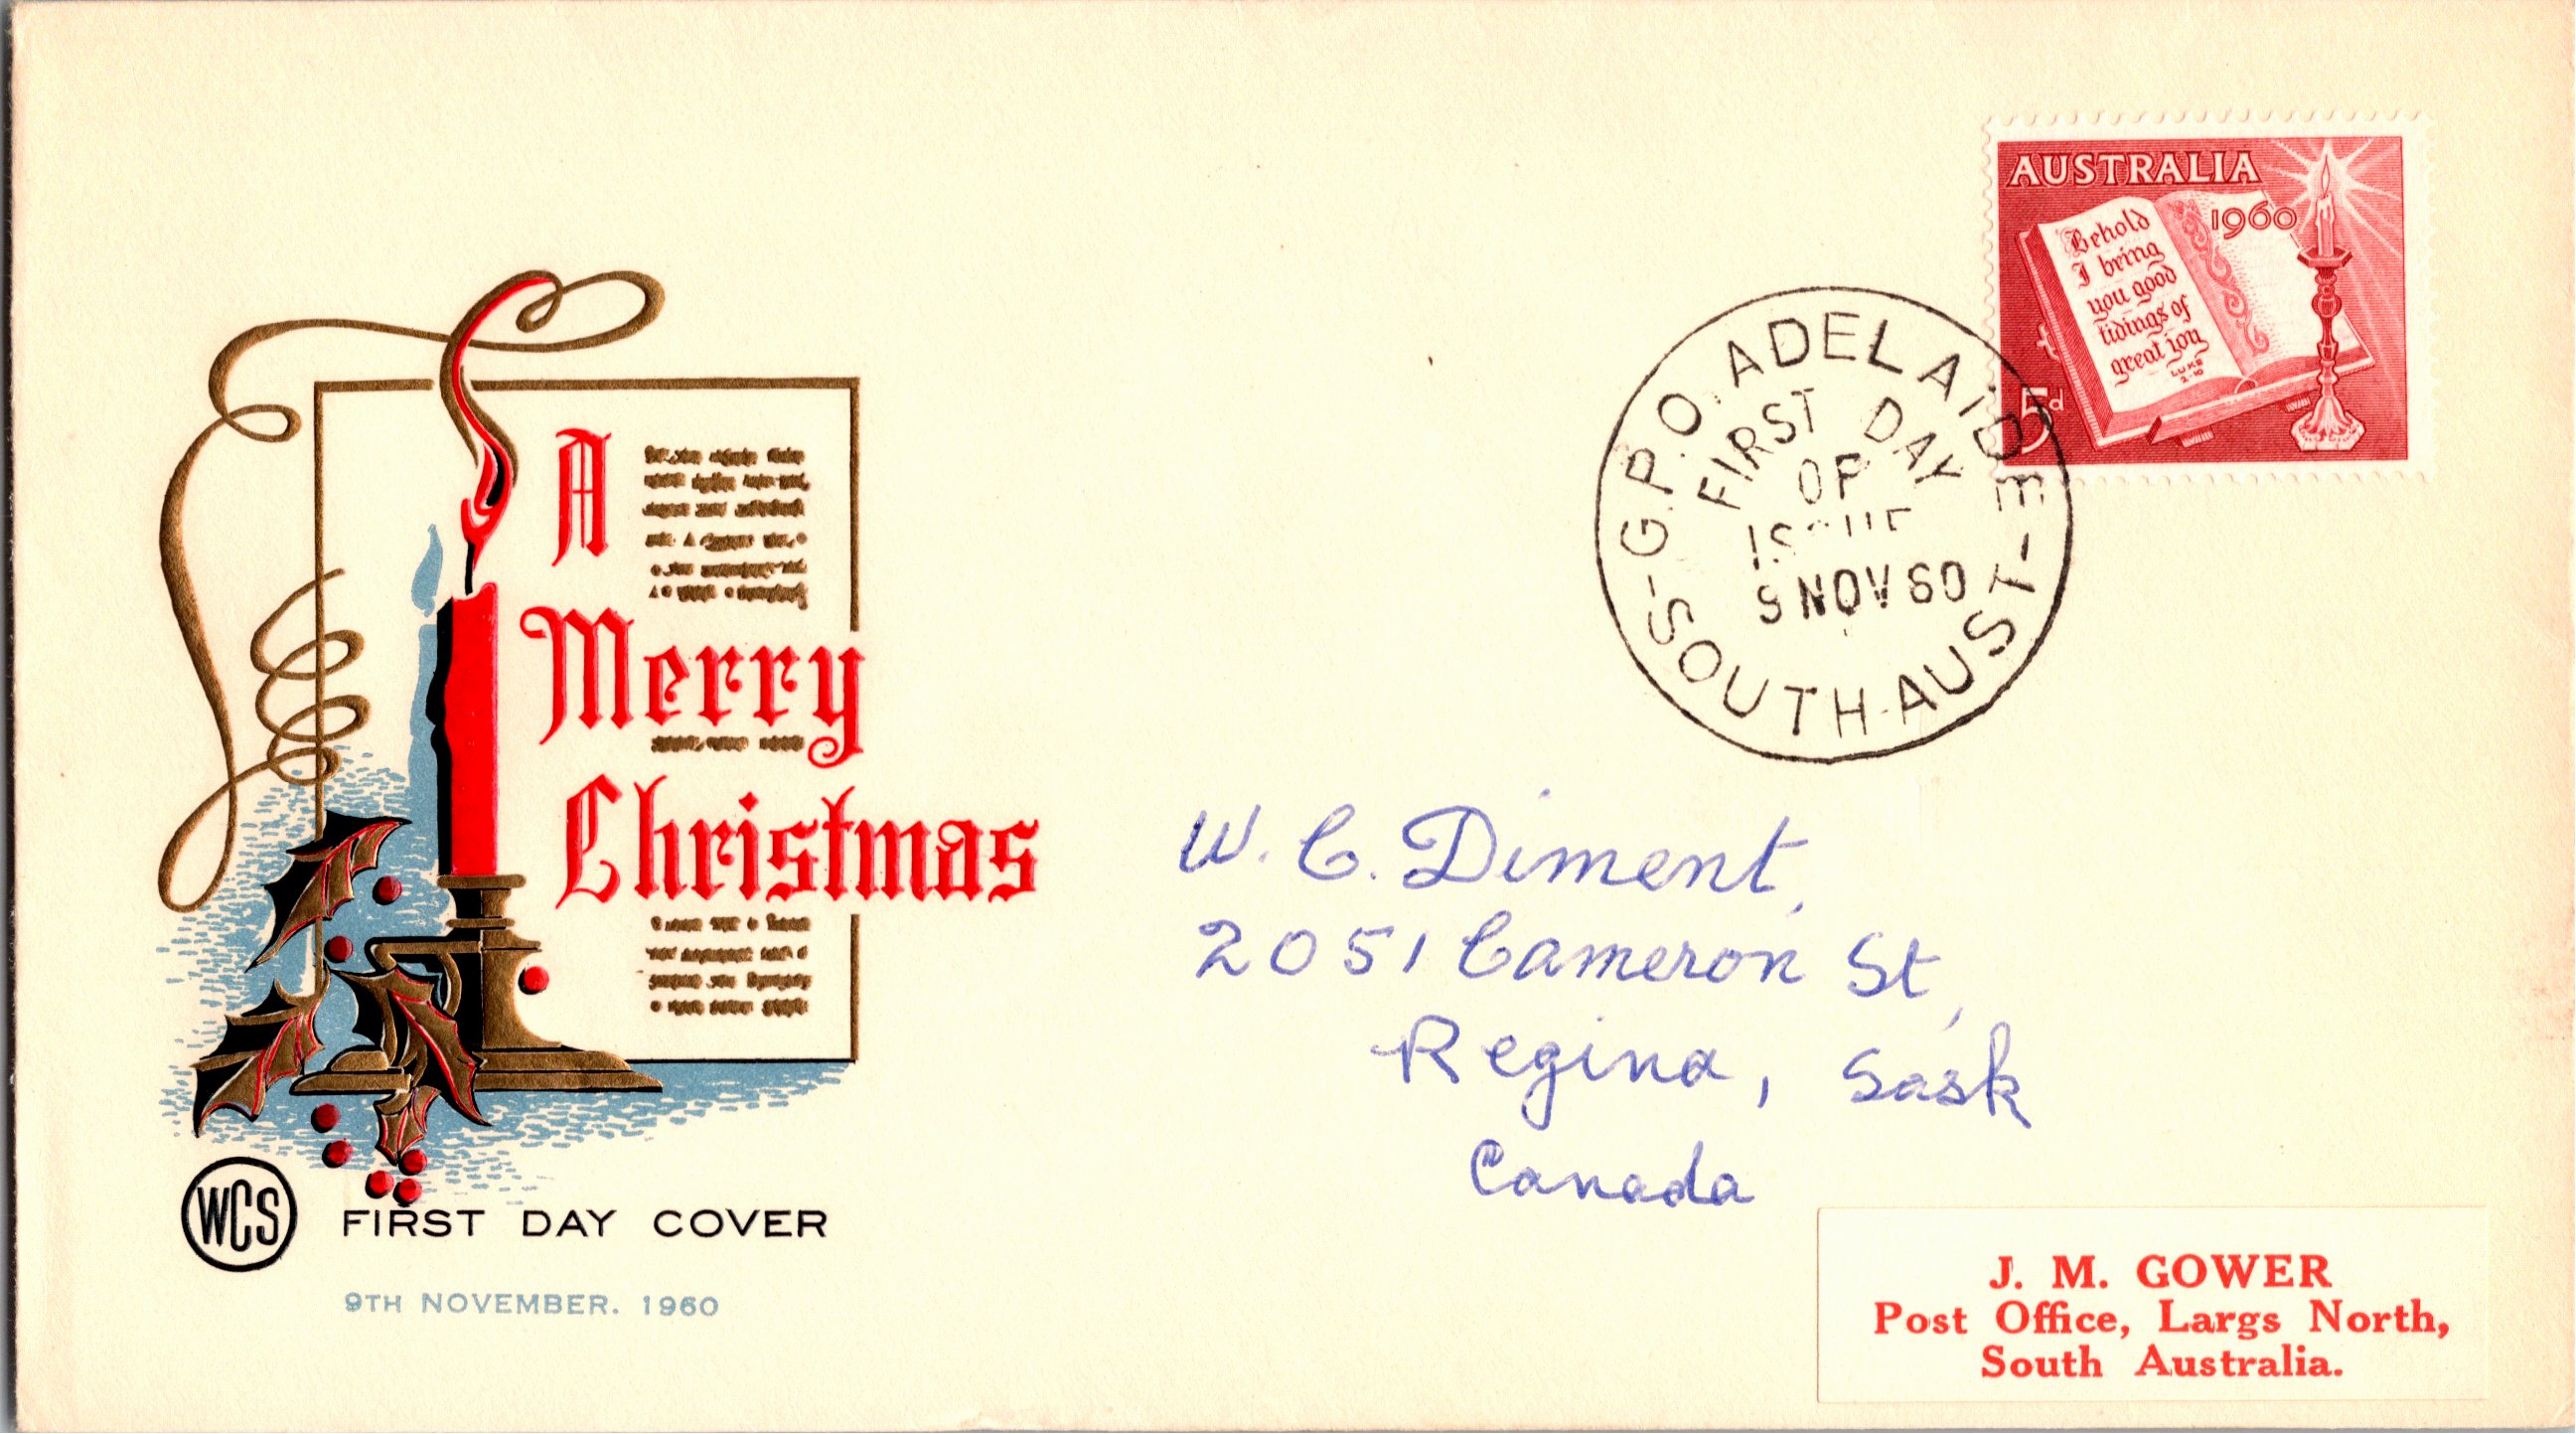 AUSTRALIA
1960
Behold
I bring
you good
tidings of
great joy
LUKE
2-10
5d
G.P.O. ADELAIDE
FIRST DAY
OF
ISSUE
9 NOV 60
-SOUTH-AUST-
A
Merry
Christmas
W. C. Diment,
2051 Cameron St,
Regina, Sask
Canada
WCS
FIRST DAY COVER
9TH NOVEMBER. 1960
J. M. GOWER
Post Office, Largs North,
South Australia.